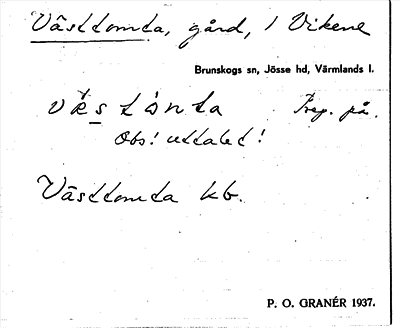 Västtomta, gård, i Vikene
Brunskogs sn, Jösse hd, Värmlands l.
Prep. på.
Obs! uttalet!
Västtomta kb.
P. O. GRANÉR 1937.